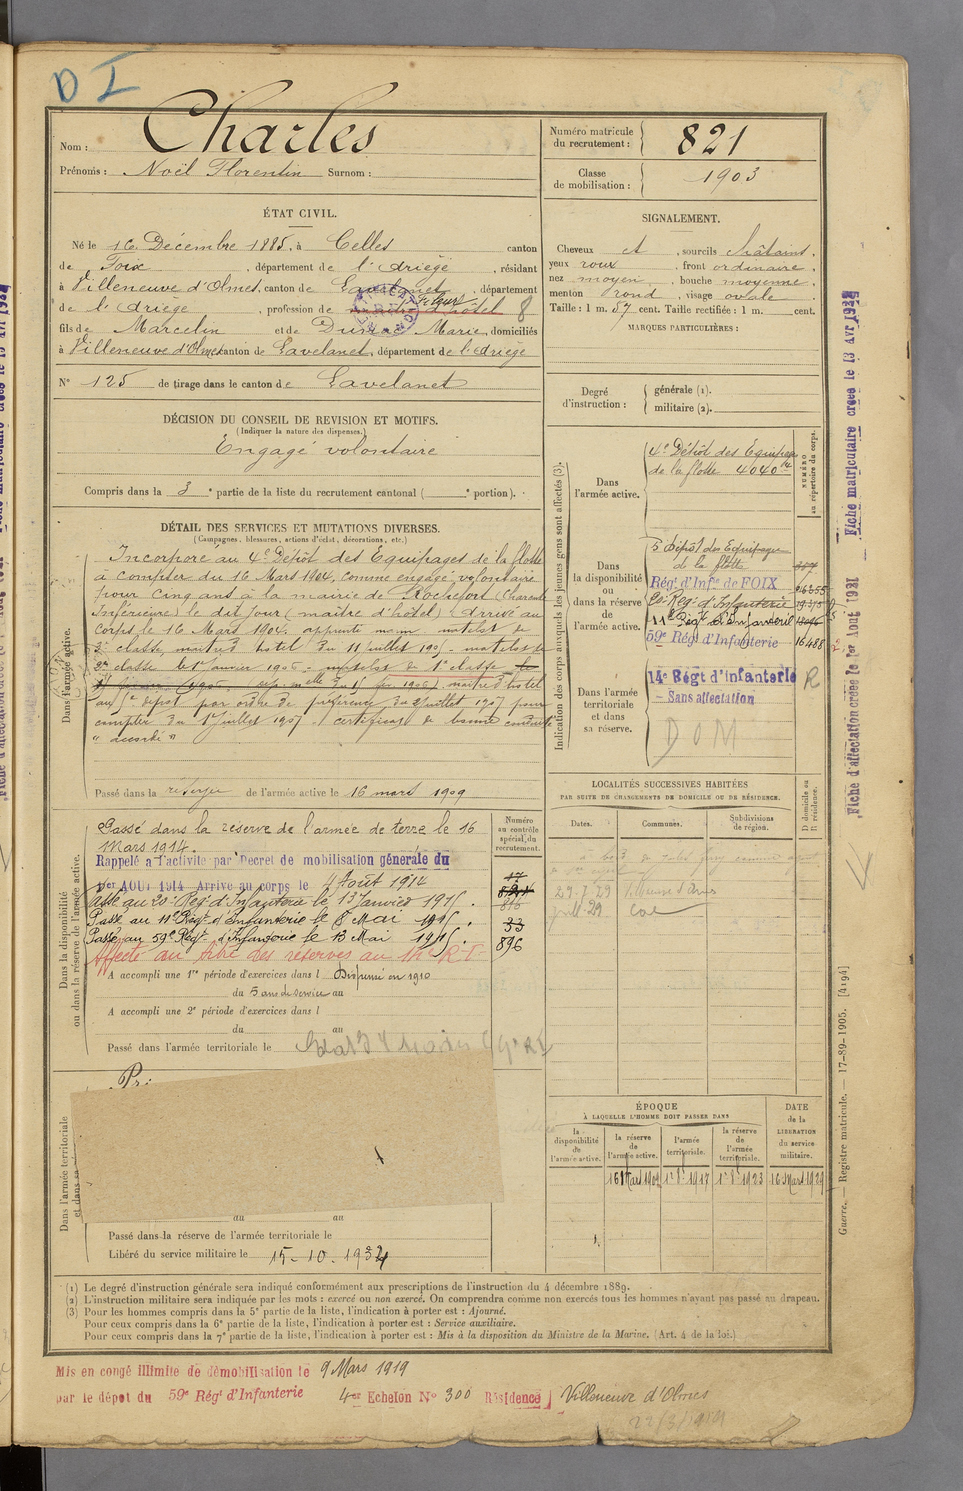 D I
Nom : Charles
Prénoms : Noël Florentin Surnom :
Numéro matricule du recrutement : 821
Classe de mobilisation : 1903
ÉTAT CIVIL.
Né le 16 Décembre 1885, à Celles canton
de Foix, département de l'Ariège, résidant
à Villeneuve d'Olmes, canton de Lavelanet, département
de l'Ariège, profession de maître d'hôtel 8
fils de Marcelin et de Marie, domiciliés
à Villeneuve d'Olmes canton de Lavelanet, département de l'Ariège
N° 125 de tirage dans le canton de Lavelanet
SIGNALEMENT.
Cheveux et, sourcils châtains,
yeux roux, front ordinaire,
nez moyen, bouche moyenne,
menton rond, visage ovale
Taille : 1 m. 57 cent. Taille rectifiée : 1 m. cent.
MARQUES PARTICULIÈRES :
Degré d'instruction : générale (1).
militaire (2).
DÉCISION DU CONSEIL DE REVISION ET MOTIFS.
(Indiquer la nature des dispenses.)
Engagé volontaire
Compris dans la 3e partie de la liste du recrutement cantonal ( e portion).
DÉTAIL DES SERVICES ET MUTATIONS DIVERSES.
(Campagnes, blessures, actions d'éclat, décorations, etc.)
Dans l'armée active.
Incorporé au 4e Dépôt des Equipages de la flotte
à compter du 16 Mars 1904, comme engagé volontaire
pour cinq ans à la mairie de Rochefort (Charente
Inférieure) le dit jour (maître d'hôtel) arrivé au
corps le 16 Mars 1904. apprenti marin matelot de
3e classe, maître d'hôtel du 11 juillet 1905 - matelot de
2e classe le 1er janvier 1906 - matelot de 1e classe
maître d'hôtel
au 5e dépôt par ordre de préférence du 2 juillet 1907 pour
compter du 1er juillet 1907. certificat de bonne conduite
"accordé"
Passé dans la réserve de l'armée active le 16 mars 1909
Indication des corps auxquels les jeunes gens sont affectés (3).
NUMÉRO au répertoire du corps.
Dans l'armée active.
4e Dépôt des Equipages
de la flotte 4040
Dans la disponibilité ou dans la réserve de l'armée active.
5 Dépôt des Equipages
de la flotte
Régt d'Infie de FOIX
20e Regt d'Infanterie
11e Regt d'Infanterie
59e Régt d'Infanterie 16488
Dans l'armée territoriale et dans sa réserve.
14e Régt d'infanterie R
Sans affectation
DOM
LOCALITÉS SUCCESSIVES HABITÉES
PAR SUITE DE CHANGEMENTS DE DOMICILE OU DE RÉSIDENCE.
Dates. Communes. Subdivisions de région. D domicile ou R résidence.
Dans la disponibilité ou dans la réserve de l'armée active.
Numéro au contrôle spécial du recrutement.
Passé dans la réserve de l'armée de terre le 16
Mars 1914.
Rappelé à l'activité par Decret de mobilisation générale du
1er AOUT 1914 Arrivé au corps le 4 Août 1914
Passé au 20e Regt d'Infanterie le 13 Janvier 1915.
Passé au 11e Régt d'Infanterie le 8 Mai 1915.
Passé au 59e Regt d'Infanterie le 13 Mai 1915.
17
821
816
33
896
Affecté au titre des réserves au 14e R.I.
A accompli une 1re période d'exercices dans l Dispensé en 1910
du 5 ans de service au
A accompli une 2e période d'exercices dans l
du au
Passé dans l'armée territoriale le
Dans l'armée territoriale
du au
Passé dans la réserve de l'armée territoriale le
Libéré du service militaire le 15-10-1934
ÉPOQUE
À LAQUELLE L'HOMME DOIT PASSER DANS
DATE de la LIBÉRATION du service militaire.
la disponibilité de l'armée active. la réserve de l'armée active. l'armée territoriale. la réserve de l'armée territoriale.
16 Mars 1909 1er 8e 1917 1er 8e 1923 16 Mars 1929
(1) Le degré d'instruction générale sera indiqué conformément aux prescriptions de l'instruction du 4 décembre 1889.
(2) L'instruction militaire sera indiquée par les mots : exercé ou non exercé. On comprendra comme non exercés tous les hommes n'ayant pas passé au drapeau.
(3) Pour les hommes compris dans la 5e partie de la liste, l'indication à porter est : Ajourné.
Pour ceux compris dans la 6e partie de la liste, l'indication à porter est : Service auxiliaire.
Pour ceux compris dans la 7e partie de la liste, l'indication à porter est : Mis à la disposition du Ministre de la Marine. (Art. 4 de la loi.)
Mis en congé illimité de démobilisation le 9 Mars 1919
par le dépôt du 59e Régt d'Infanterie 4er Echelon N° 300 Résidence Villeneuve d'Olmes
22/3/1919
Fiche matriculaire créée le 13 Avr 1931
Fiche d'affectation créée le 1er Août 1931
Guerre. — Registre matricule. — 17-89-1905. [4194]